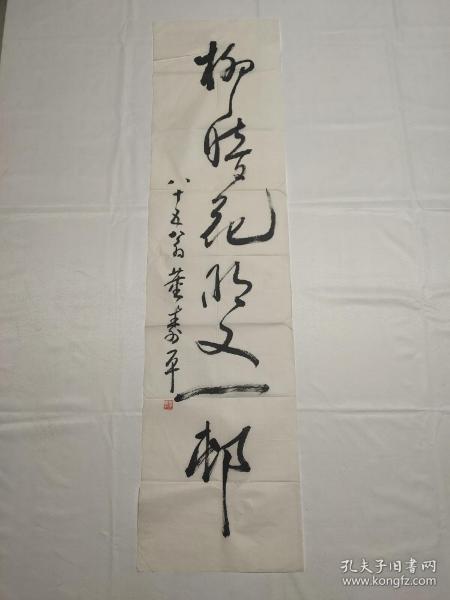 柳暗花明又一邨
八十五翁董寿平
孔夫子旧书网
www.kongfz.com